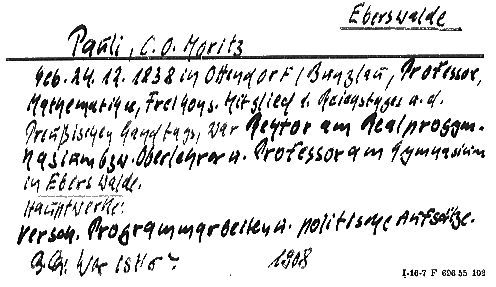 Eberswalde
Pauli, C. O. Moritz
geb. 24. 12. 1838 in Ottendorf / Bunzlau, Professor,
Mathematique, Freikons. Mitglied d. Reichstages u. d.
Preußischen Landtags, war Rektor am Realprogym-
nasium bzw. Oberlehrer u. Professor am Gymnasium
in Eberswalde.
Hauptwerke:
Versch. Programmarbeiten u. politische Aufsätze.
1908
I-16-7 F 696 55 102